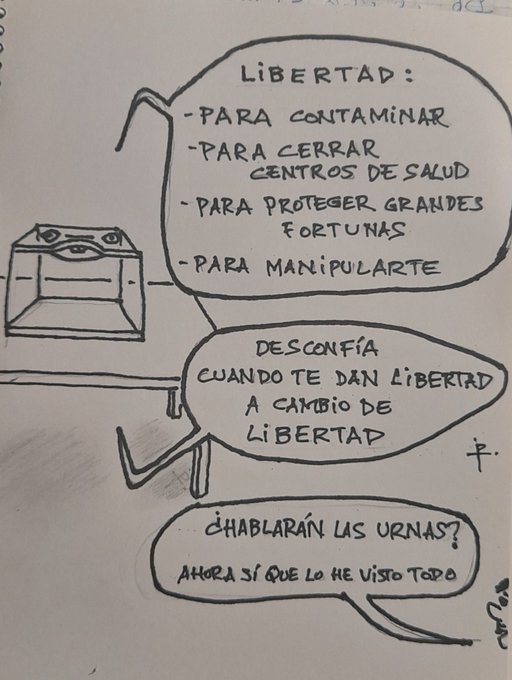 LIBERTAD:
- PARA CONTAMINAR
- PARA CERRAR
CENTROS DE SALUD
- PARA PROTEGER GRANDES
FORTUNAS
- PARA MANIPULARTE
DESCONFÍA
CUANDO TE DAN LIBERTAD
A CAMBIO DE
LIBERTAD
¿HABLARÁN LAS URNAS?
AHORA SÍ QUE LO HE VISTO TODO